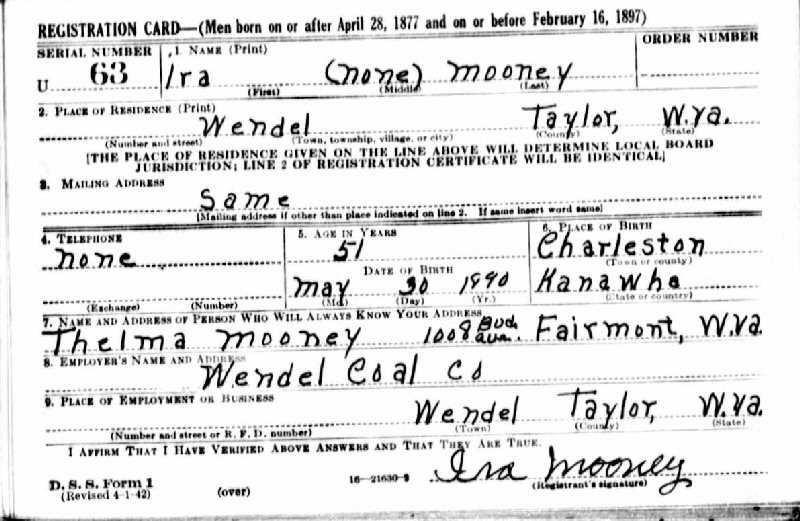 REGISTRATION CARD—(Men born on or after April 28, 1877 and on or before February 16, 1897)
SERIAL NUMBER 1. NAME (Print) ORDER NUMBER
U 63 Ira (none) Mooney
(First) (Middle) (Last)
2. PLACE OF RESIDENCE (Print)
Wendel Taylor, W.Va.
(Number and street) (Town, township, village, or city) (County) (State)
[THE PLACE OF RESIDENCE GIVEN ON THE LINE ABOVE WILL DETERMINE LOCAL BOARD
JURISDICTION; LINE 2 OF REGISTRATION CERTIFICATE WILL BE IDENTICAL]
3. MAILING ADDRESS
Same
[Mailing address if other than place indicated on line 2. If same insert word same]
4. TELEPHONE 5. AGE IN YEARS 6. PLACE OF BIRTH
none 51 Charleston
(Town or county)
DATE OF BIRTH
May 30 1890 Kanawha
(Exchange) (Number) (Mo.) (Day) (Yr.) (State or country)
7. NAME AND ADDRESS OF PERSON WHO WILL ALWAYS KNOW YOUR ADDRESS
Thelma Mooney 1008 Fairmont, W.Va.
8. EMPLOYER'S NAME AND ADDRESS
Wendel Coal Co
9. PLACE OF EMPLOYMENT OR BUSINESS
Wendel Taylor, W.Va.
(Number and street or R. F. D. number) (Town) (County) (State)
I AFFIRM THAT I HAVE VERIFIED ABOVE ANSWERS AND THAT THEY ARE TRUE.
D. S. S. Form 1
(Revised 4-1-42) (over) 16—21630-2 Ira Mooney
(Registrant's signature)